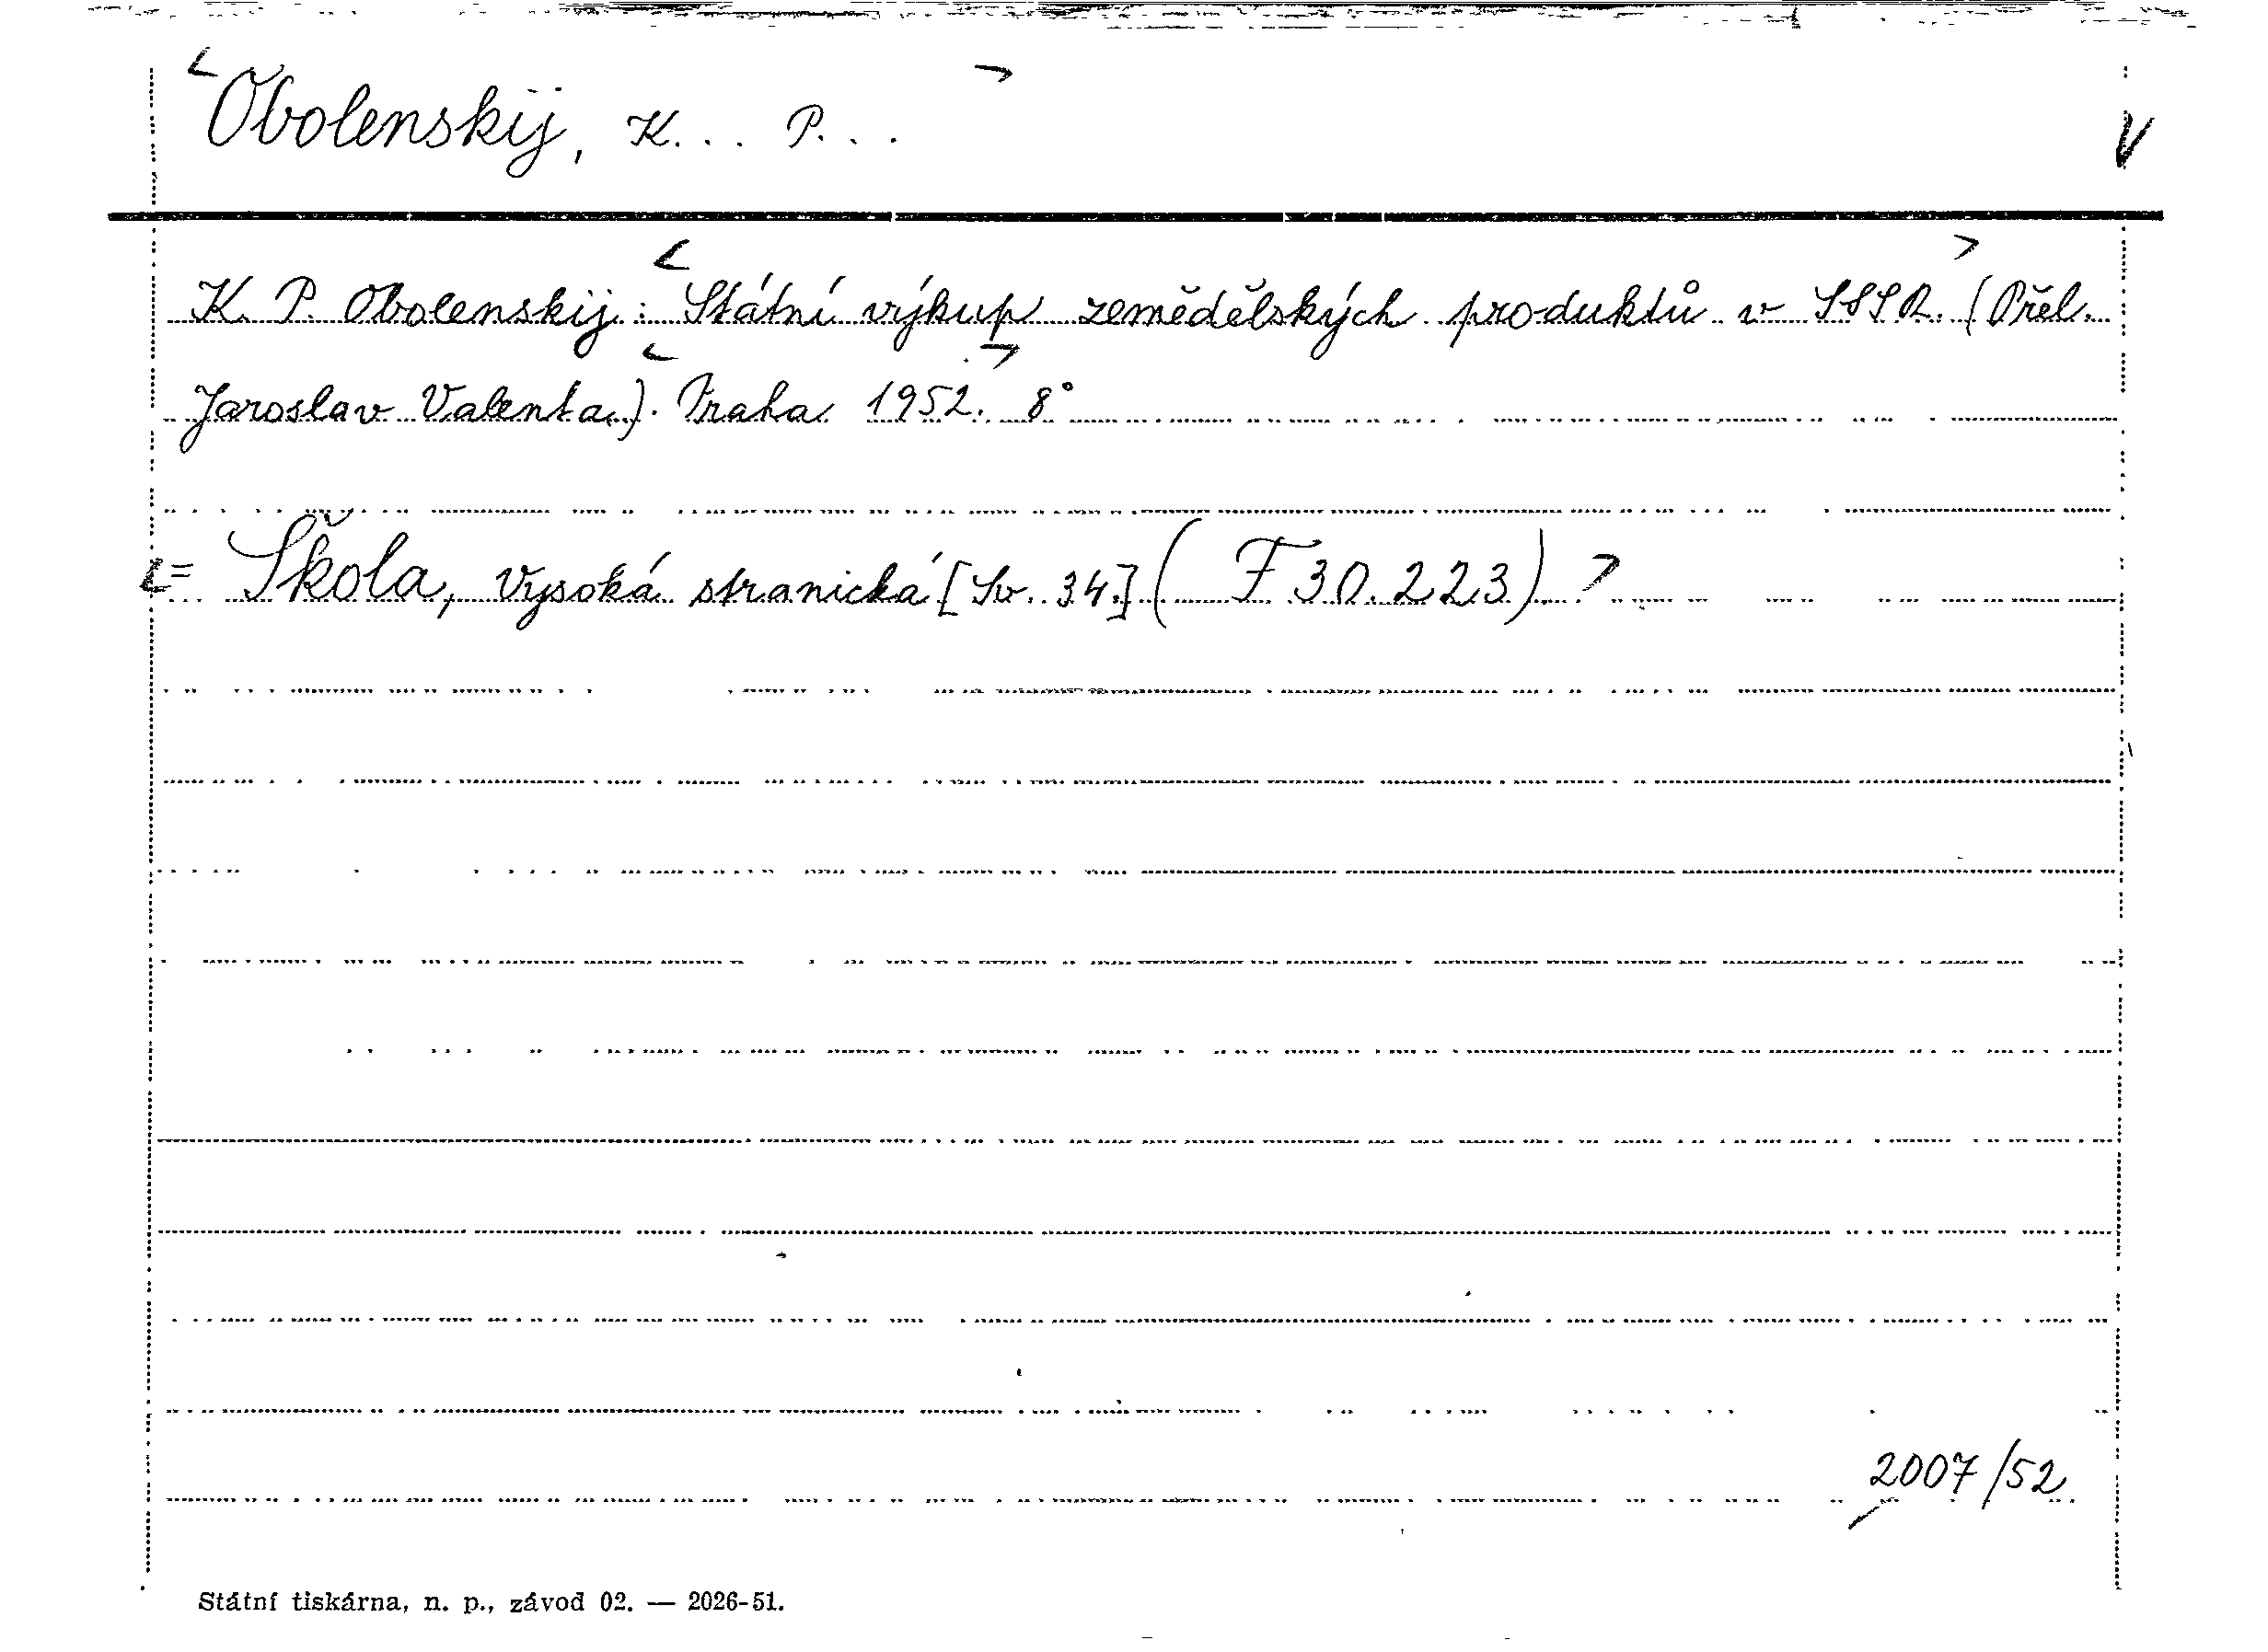 Obolenskij, K... P...
K. P. Obolenskij: Státní výkup zemědělských produktů v SSSR. (Přel.
Jaroslav Valenta.). Praha 1952. 8°
= Škola, vysoká stranická [Sv. 34.] (F 30.223).
2007/52.
Státní tiskárna, n. p., závod 02. — 2026-51.